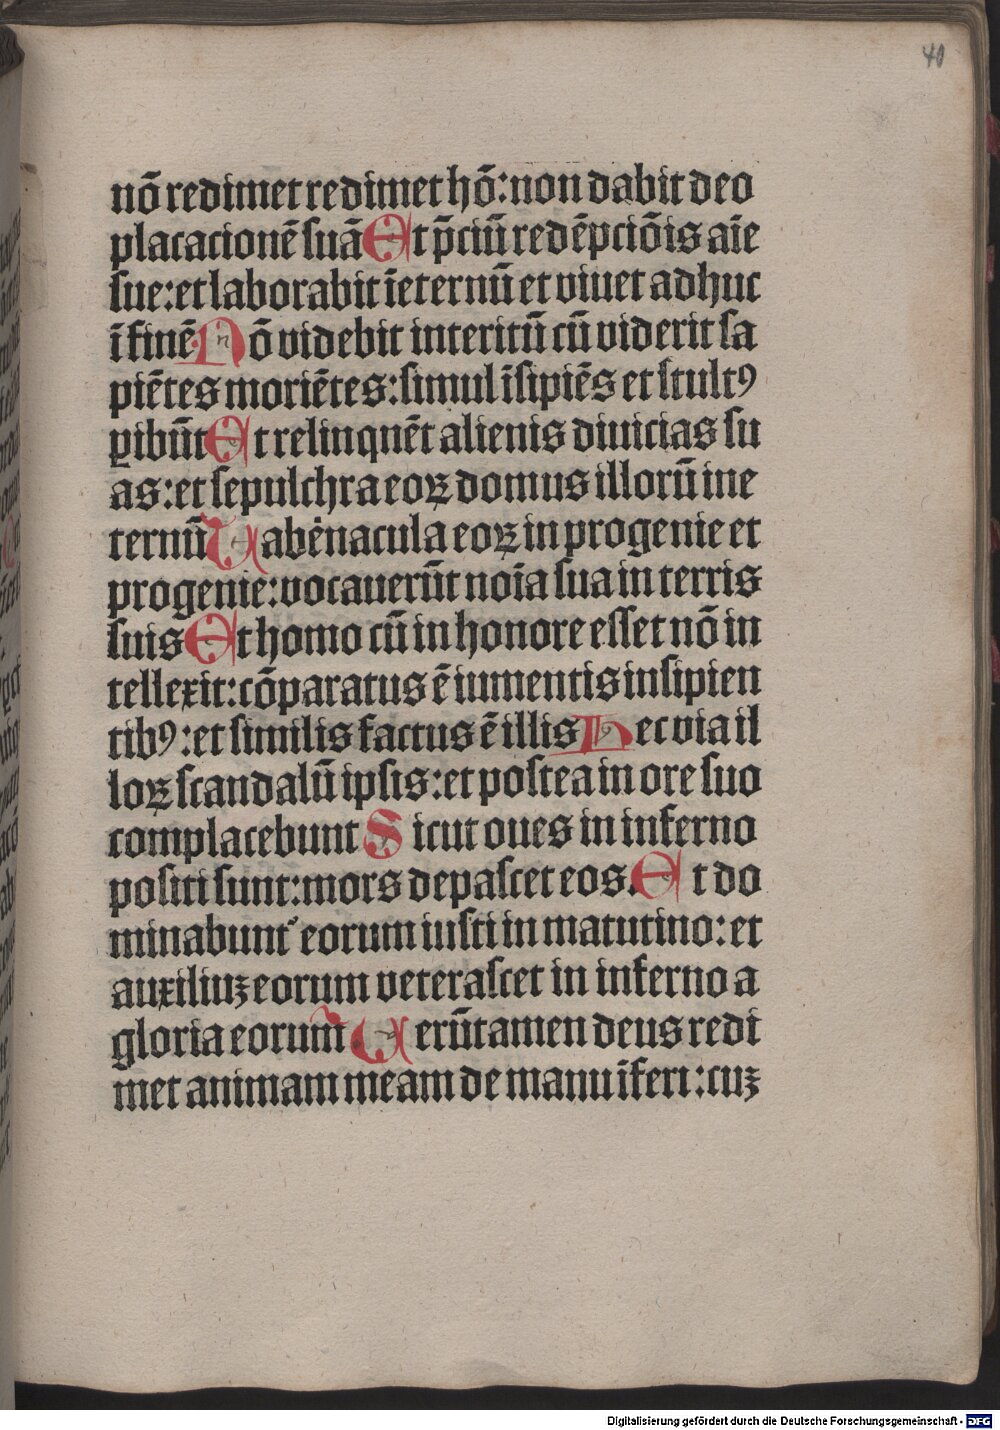 40
nō redimet redimet hō: non dabit deo
placacionē suā Et p̄ciū redēpciōis aīe
sue: et laborabit ī eternū et viuet adhuc
ī finē Nō videbit interitū cū viderit sa
piētes moriētes: simul īsipiēs et stultꝰ
ꝑibūt Et relinquēt alienis diuicias su
as: et sepulchra eoꝝ domus illorū in e
ternū Tab̾nacula eoꝝ in progenie et
progenie: vocauerūt noīa sua in terris
suis Et homo cū in honore esset nō in
tellexit: cōparatus ē iumentis insipien
tibꝰ: et similis factus ē illis Hec via il
loꝝ scandalū ipsis: et postea in ore suo
complacebunt Sicut oues in inferno
positi sunt: mors depascet eos. Et do
minabunt᷑ eorum iusti in matutino: et
auxiliuꝫ eorum veterascet in inferno a
gloria eorum Verūtamen deus redi
met animam meam de manu īferi: cuꝫ
Digitalisierung gefördert durch die Deutsche Forschungsgemeinschaft - DFG